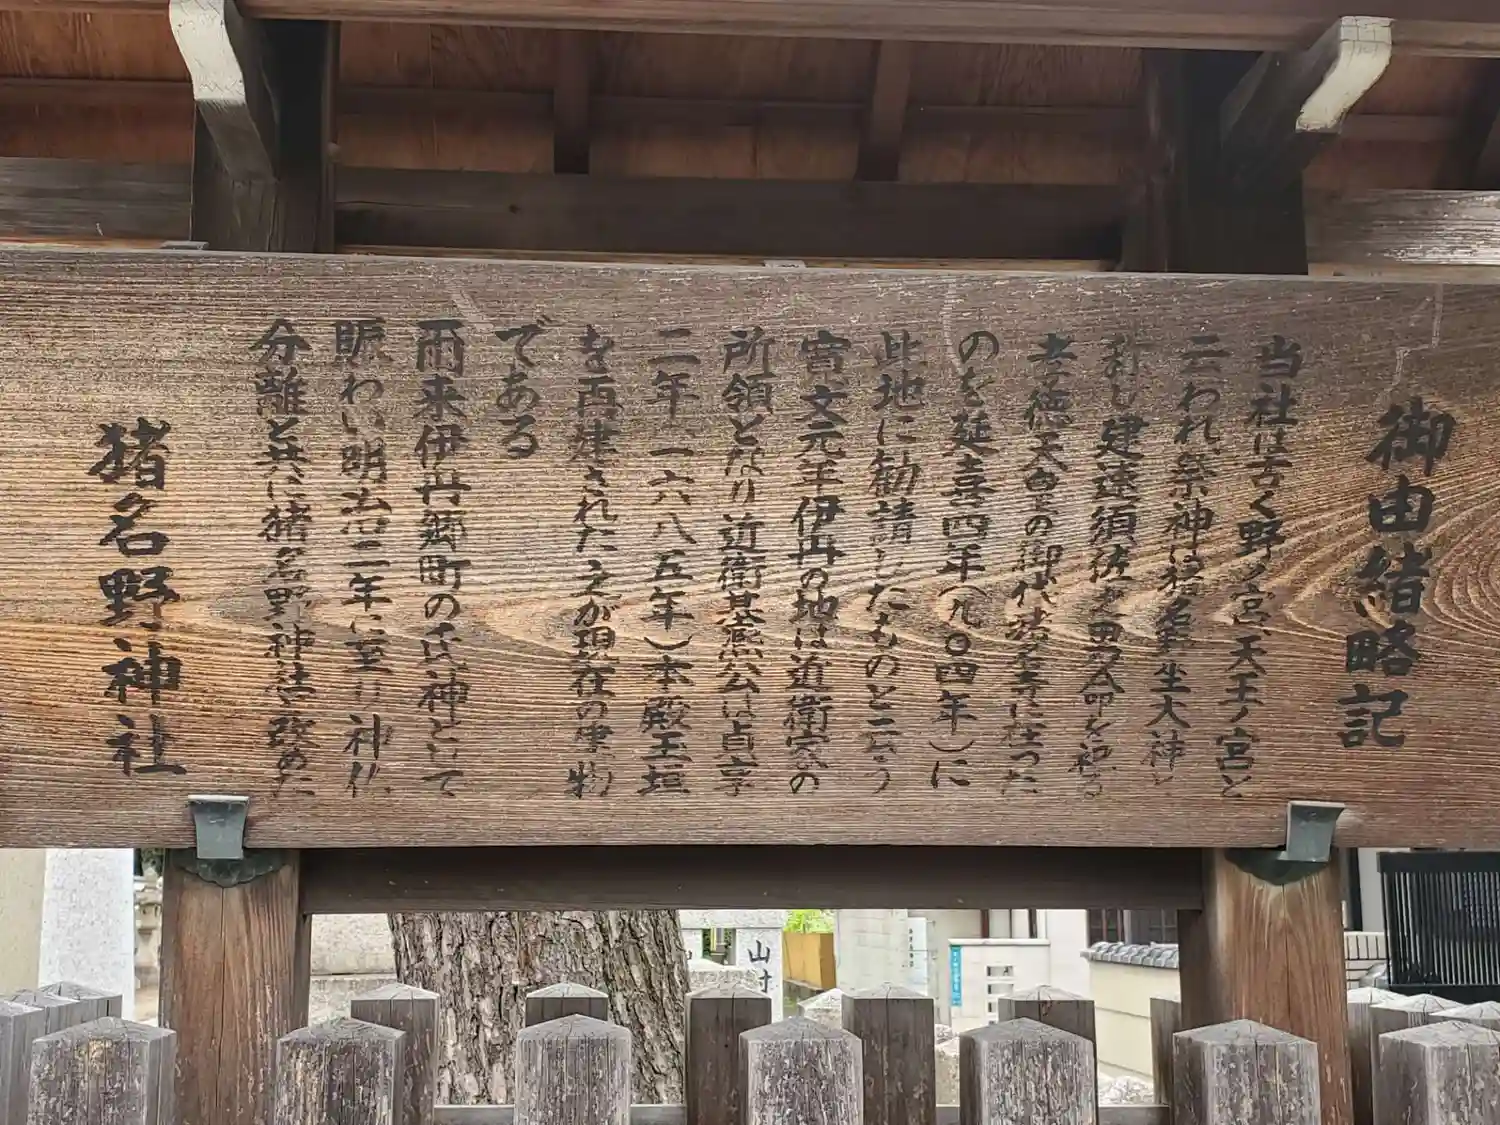 御由緒略記
当社は古く野ノ宮、天王ノ宮と
云われ祭神は猪名野坐大神と
称し建速須佐之男命を祀る
孝徳天皇の御代猪名寺に在った
のを延喜四年(九〇四年)に
此地に勧請したものと云う
寛文元年伊丹の地は近衛家の
所領となり近衛基熙公は貞享
二年(一六八五年)本殿玉垣
を再建されたこれが現在の建物
である
雨来伊丹郷町の氏神として
賑わい明治二年に至り神仏
分離と共に猪名野神社と改めた
猪名野神社
山